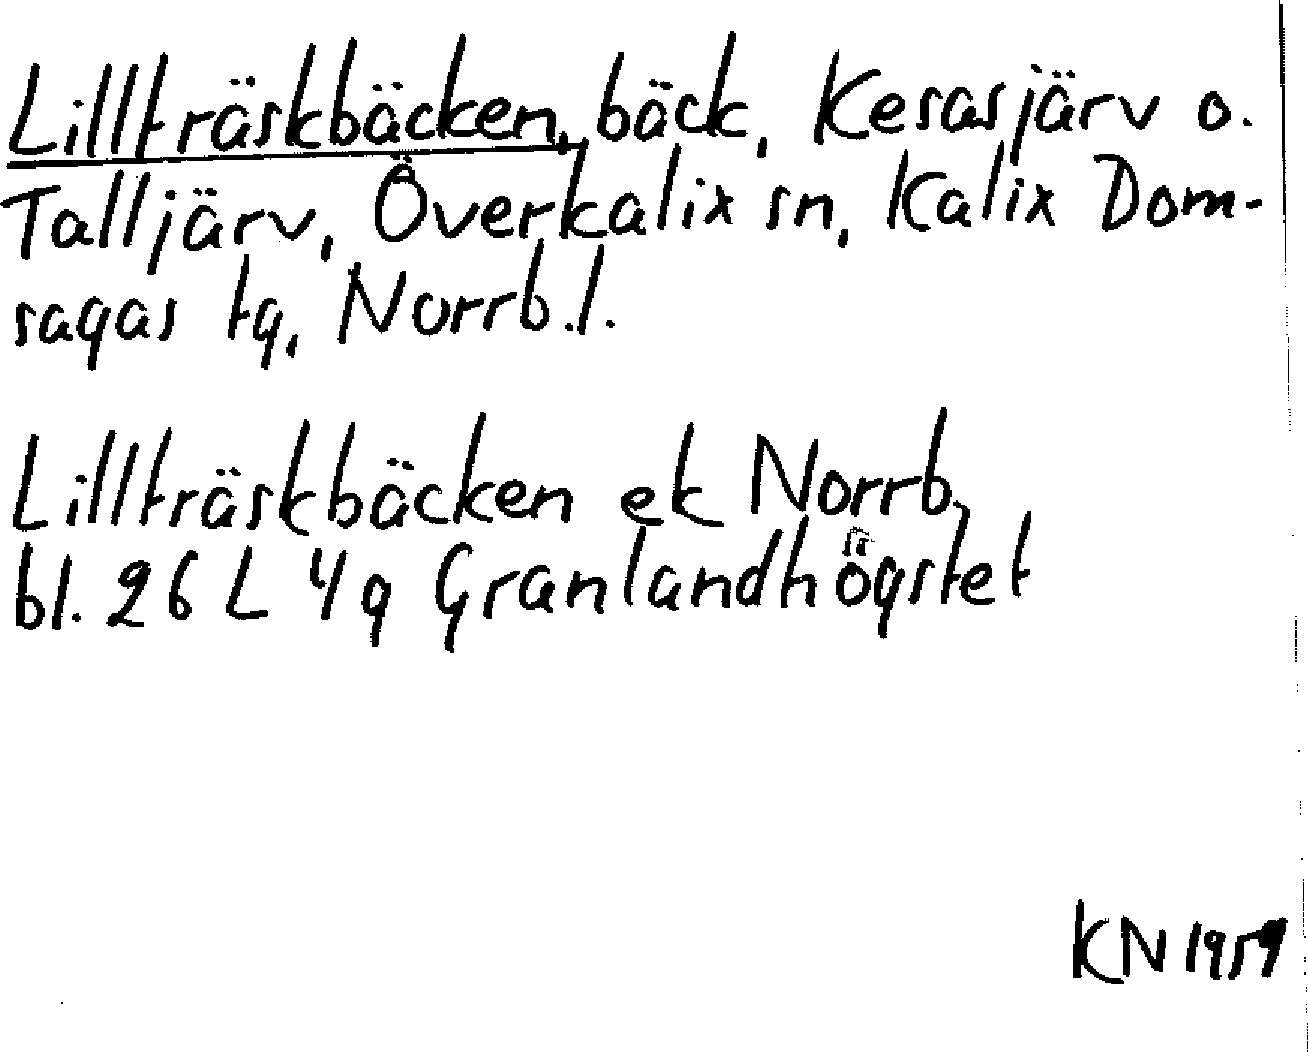 Lillträskbäcken, bäck, Kesasjärv o.
Talljärv, Överkalix sn, Kalix Dom-
sagas tg, Norrb.l.
Lillträskbäcken ek Norrb.
bl. 26 L 4g Granlandhögstet
KN 1959